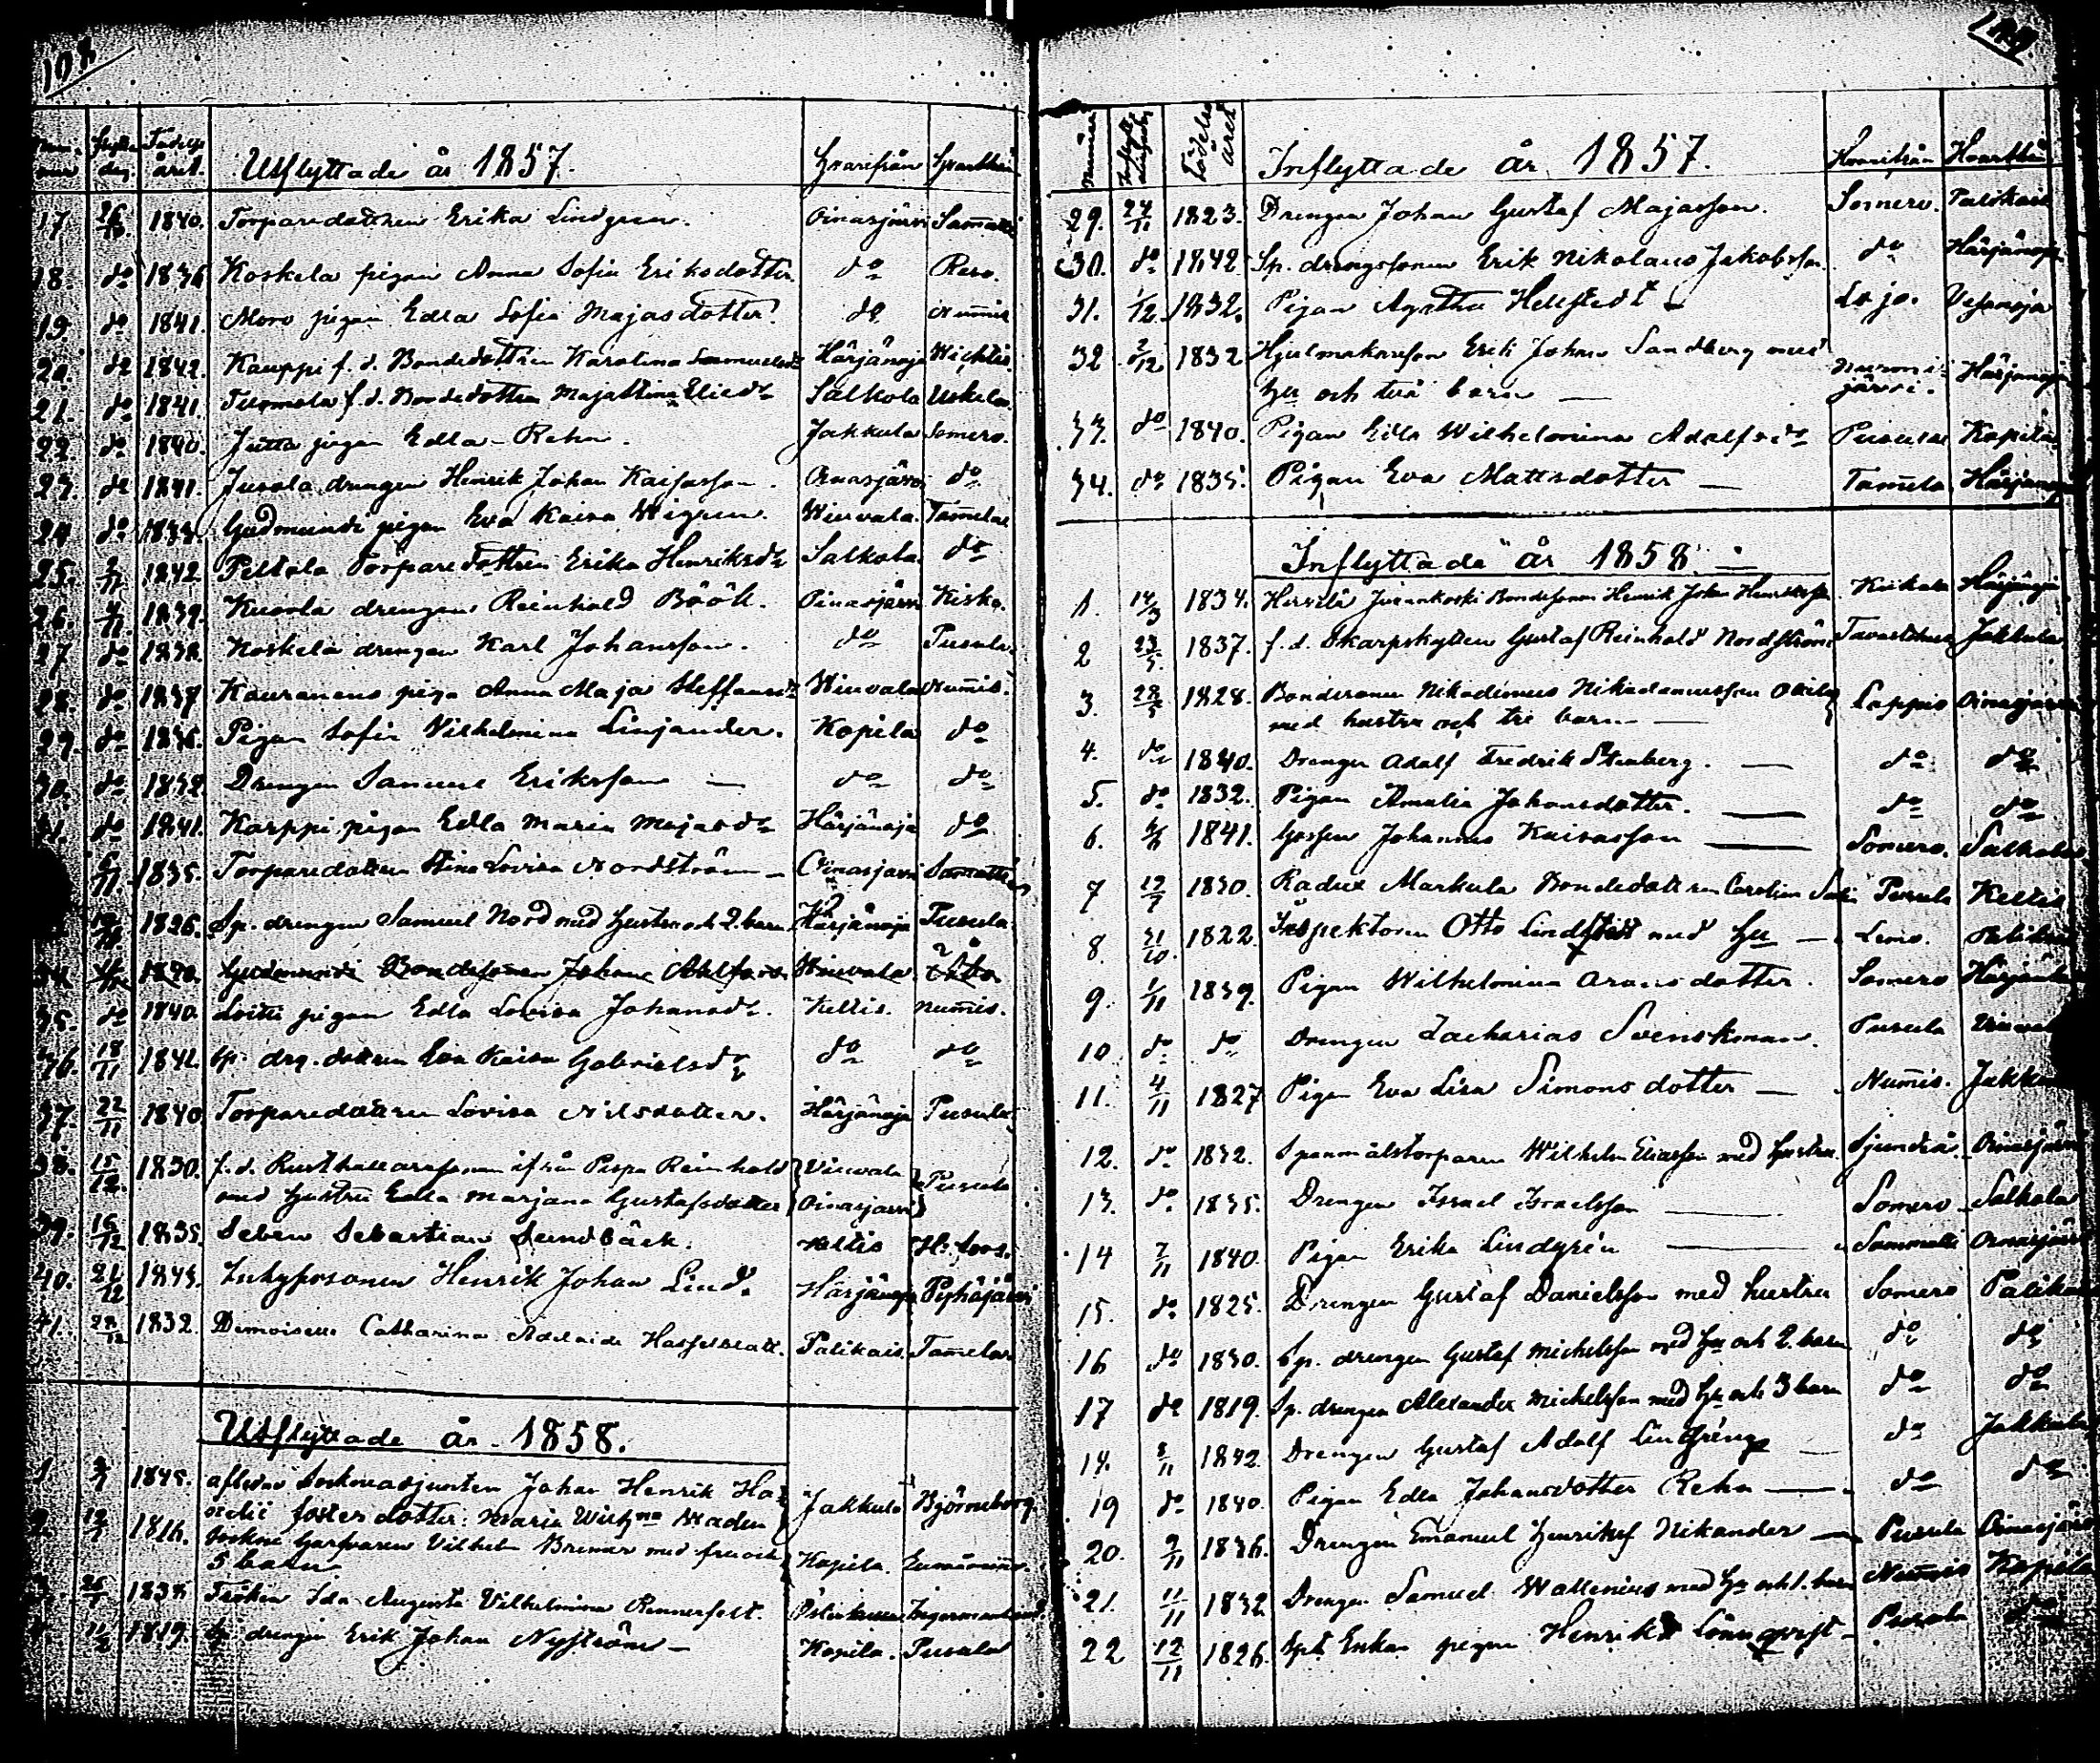 108
Num- mer | flytt. dag | Födelse året. | Utflyttade år 1857. | Hvarifrån | Hvarthän
17 26/10 1840. Torparedottren Erika Lindgren. Oinasjärvi Sammatti
18. do 1836 Koskela pigan Anna Sofia Eriksdotter. do
19. do 1841. Moro pigan Edla Sofia Majasdotter. do Nummis
20. do 1842. Kauppi f. d. Bondedottren Karolina Samuelsdr Härjänoja Wichtis.
21. do 1841. f. d. Bondedottren Maja Stina Eliedr Salkola Uskela.
22. do 1840. Jutta pigan Edla Rehn. Jakkula Somero.
23. do 1841. Jusola drengen Henrik Johan Kaisasson. Oinasjärvi do
24. do Gudmundi pigan Eva Kaisa Wigren. Wiuvala. Tammela
25. 2/11 1842 Peltola Torparedottren Erika Henriksdr Salkola do
26. 1839. Kuoola drengen Reinhold Böök. Oinasjärvi Kisko.
27 do 1838. Koskela drengen Karl Johansson. do Pusula.
28. do 1837 Kauranens piga Anna Maja Steffansdr Wiuvala Nummis.
29. do 1836. Pigan Sofia Vilhelmina Linjander. Kopila do
30. do 1832 Drengen Samuel Eriksson — do do
31. do 1841. Karppi pigan Edla Maria Majasdr Härjänoja do
6/11 1835. Torparedottren Stina Lovisa Nordström — Oinasjärvi Sammatti
1826. Sp. drengen Samuel Nord med hustru och 2. barn Härjänoja Pusula
34. 1840. Gudmundi Bondesonen Johan Wiuvala. Åbo
35. do 1840. Loitti pigan Edla Lovisa Johansdr. Keltis. Nummis.
36. 18/11 1842. Sp. drg. dottren Eva Kaisa Gabrielsdr do do
37. 22/11 1840 Torparedottren Lovisa Nilsdotter. Härjänoja Pusula
38. 15/12 1830. f. d. Rusthållaresonen ifrån Pispa Reinhold Viuvala Pusula
med hustru Edla Marjana Gustafsdotter Oinasjärvi
39. 16/12 1835. Seben Sebastian Sundbäck. Keltis H:fors.
40. 21/12 1845. Inhysesonen Henrik Johan Lind. Härjänoja Pyhäjärvi
41. 28/12 1832. Demoiselle Catharina Adelaide Hasselblatt. Palikais. Tammela
Utflyttade år 1858.
1 1845. aflidne Sockneadjunkten Johan Henrik Ha-
fosterdotter: Maria Wilh:na Jakkula Björneborg.
2. 12/1 1816. Sockne Garfvaren Vilhelm Bremer med fru och
5 barn Kopila.
3. 26/1 1838 Fröken Ida Augusta Vilhelmina Rennerfelt. Ingermanland.
4. 11/2 1819. Sp. drengen Erik Johan Nyström — Kopila. Pusula
109
Nummer | Inflytt. | Födelse året | Inflyttade år 1857. | Hvarifrån | Hvarthän
29. 24/11 1823. Drengen Johan Gustaf Majasson. Somero. Palikais
30. do 1842 Sp. drengsonen Erik Nikolaus Jakobsson. do Härjänoja
31. 1/12. 1832. Pigan Agatha Hellstedt — Lojo. Vesanoja
32 2/12 1832 Hjulmakaresson Erik Johan Sandberg med
hu och två barn — Nurmi-järvi. Härjänoja
33. do 1840. Pigan Edla Wilhelmina Adolfsdr Pusula Kopila
34. do 1835. Pigan Eva Mattsdotter — Tammela Härjänoja
Inflyttade år 1858.
1. 14/3 1834. Juvankoski Bondesonen Henrik Johan Henriksson Kiikala Härjänoja
2 23/5. 1837. f. d. Skarpskytten Gustaf Reinhold Nordström Tavastehus Jakkula
3. 28/5 1828. Bondesonen Nikodemus Nikodemusson
med hustru och tre barn — Loppis Oinasjärvi
4. do 1840. Drengen Adolf Fredrik Stenberg. — do do
5. do 1832. Pigan Amalia Johansdotter. — do do
6. 1841. Gossen Johannes Kaisasson — Somero. Salkola
7 1830. Radus Markula Bondedottren Carolina Pusula Keltis
8 21/10 1822. Inspektoren Otto Lindstedt med hu — Lemo. Palikais
9. 1/11 1839. Pigan Wilhelmina Aronsdotter. Somero Härjänoja
10 do do Drengen Zacharias Svenskman. Pusula Viuvala
11. 4/11 1827 Pigan Eva Lisa Simonsdotter — Nummis. Jakkula
12. do 1832. Spanmålstorparen Wilhelm Eliasson med hustru. Sjundeå. Oinasjärvi
13. do 1835. Drengen Israel Israelsson — Somero Salkola
14 7/11 1840. Pigan Erika Lindgrén — Sammatti Oinasjärvi
15. do 1825. Drengen Gustaf Danielsson med hustru Somero Palikais
16 do 1830. Sp. drengen Gustaf Michelsson med hu och 2. barn do do
17 do 1819. Sp. drengen Alexander Michelsson med hu och 3 barn do do
18. 8/11 1842. Drengen Gustaf Adolf — do Jakkula
19 do 1840. Pigan Edla Johansdotter Rehn — do do
20. 9/11 1836. Drengen Emanuel Henriksf Nikander — Pusula Oinasjärvi
21. 11/11 1832 Drengen Samuel Wallenius med hu och 1. barn Nummis Kopila
22 12/11 1826. Enkan pigan Lönnqvist — Pusula do